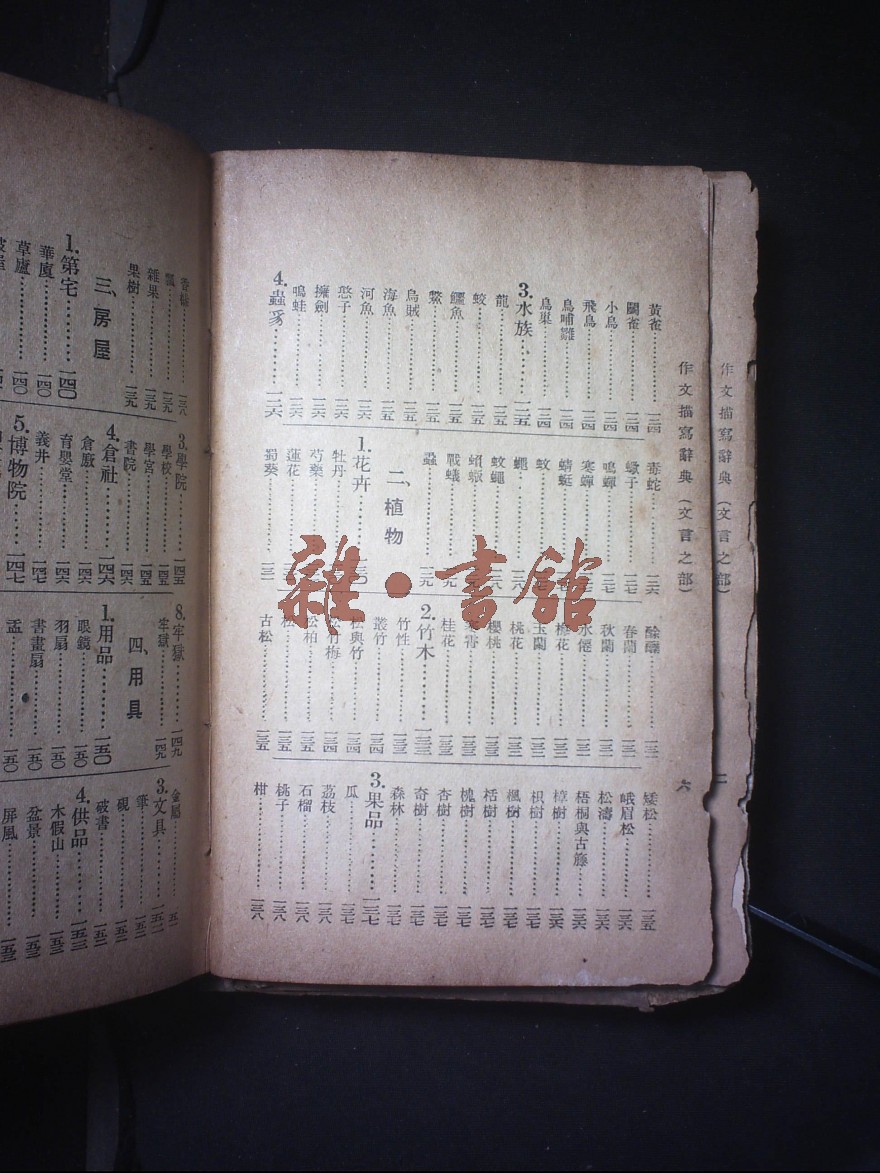 作文描寫辭典(文言之部)
二
作文描寫辭典(文言之部)
六
黃雀 一二四
鬭雀 一二四
小鳥 一二四
飛鳥 一二四
鳥哺雛 一二四
鳥巢 一二四
3.水族 一二五
龍 一二五
蛟 一二五
鱷魚 一二五
鱉 一二五
烏賊 一二五
海魚 一二五
河魚 一二六
慜子 一二六
擁劍 一二六
鳴蛙 一二六
4.蟲豸 一二六
毒蛇 一二六
蠍子 一二七
鳴蟬 一二七
寒蟬 一二七
蜻蜓
蚊
蠅 一二八
蚊蠅
蝜蝂
戰蟻 一二九
蟲 一二九
二、植物
1.花卉 一三〇
牡丹
芍藥
蓮花
蜀葵 一三一
酴醿 一三一
春蘭 一三一
秋蘭 一三一
水僊 一三一
梅花 一三二
玉蘭 一三二
桃花 一三二
櫻桃 一三二
桂花 一三三
2.竹木 一三三
竹性 一三三
叢竹 一三四
松與竹 一三四
松竹梅 一三四
松柏 一三五
松 一三五
古松 一三五
矮松 一三五
峨眉松 一三六
松濤 一三六
梧桐與古籐 一三六
樟樹 一三六
枳樹 一三七
楓樹 一三七
栝樹 一三七
槐樹 一三七
杏樹 一三七
奇樹 一三七
森林 一三七
3.果品 一三七
瓜 一三七
荔枝 一三八
石榴 一三八
桃子 一三八
柑 一三八
香櫞 一三八
瓢
雜果 一三九
果樹 一三九
三、房屋
1.第宅 一四〇
華廈 一四〇
草廬 一四〇
3.學院 一四五
學校 一四五
學宮 一四五
書院 一四六
4.倉社 一四六
倉廒 一四六
育嬰堂 一四六
義井 一四七
5.博物院 一四七
8.牢獄 一四九
牢獄 一四九
四、用具
1.用品 一五〇
眼鏡 一五〇
羽扇 一五〇
書畫扇 一五〇
盂 一五〇
金屬
3.文具 一五二
筆 一五二
硯 一五二
破書 一五二
4.供品 一五三
木假山 一五三
盆景 一五三
屏風 一五三
雜·書館